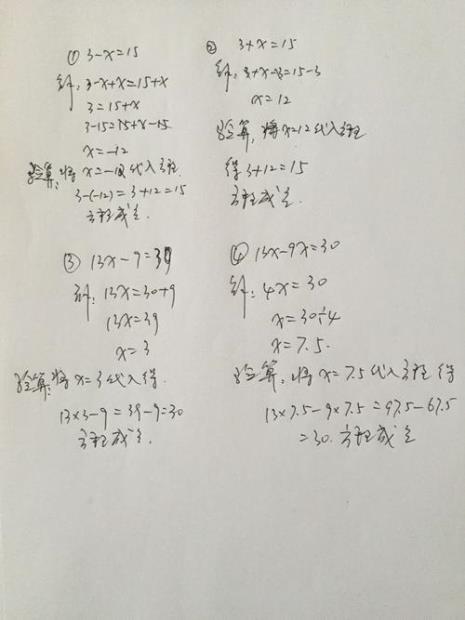 ① 3-x=15
解: 3-x+x=15+x
3=15+x
3-15=15+x-15
x=-12
验算:将x=-12代入方程
3-(-12)=3+12=15
方程成立.
② 3+x=15
解: 3+x-3=15-3
x=12
验算,将x=12代入方程
得3+12=15
方程成立.
③ 13x-9=30
解: 13x=30+9
13x=39
x=3
验算:将x=3代入得
13×3-9=39-9=30
方程成立.
④ 13x-9x=30
解: 4x=30
x=30÷4
x=7.5.
验算:将x=7.5代入方程得
13×7.5-9×7.5=97.5-67.5
=30.方程成立